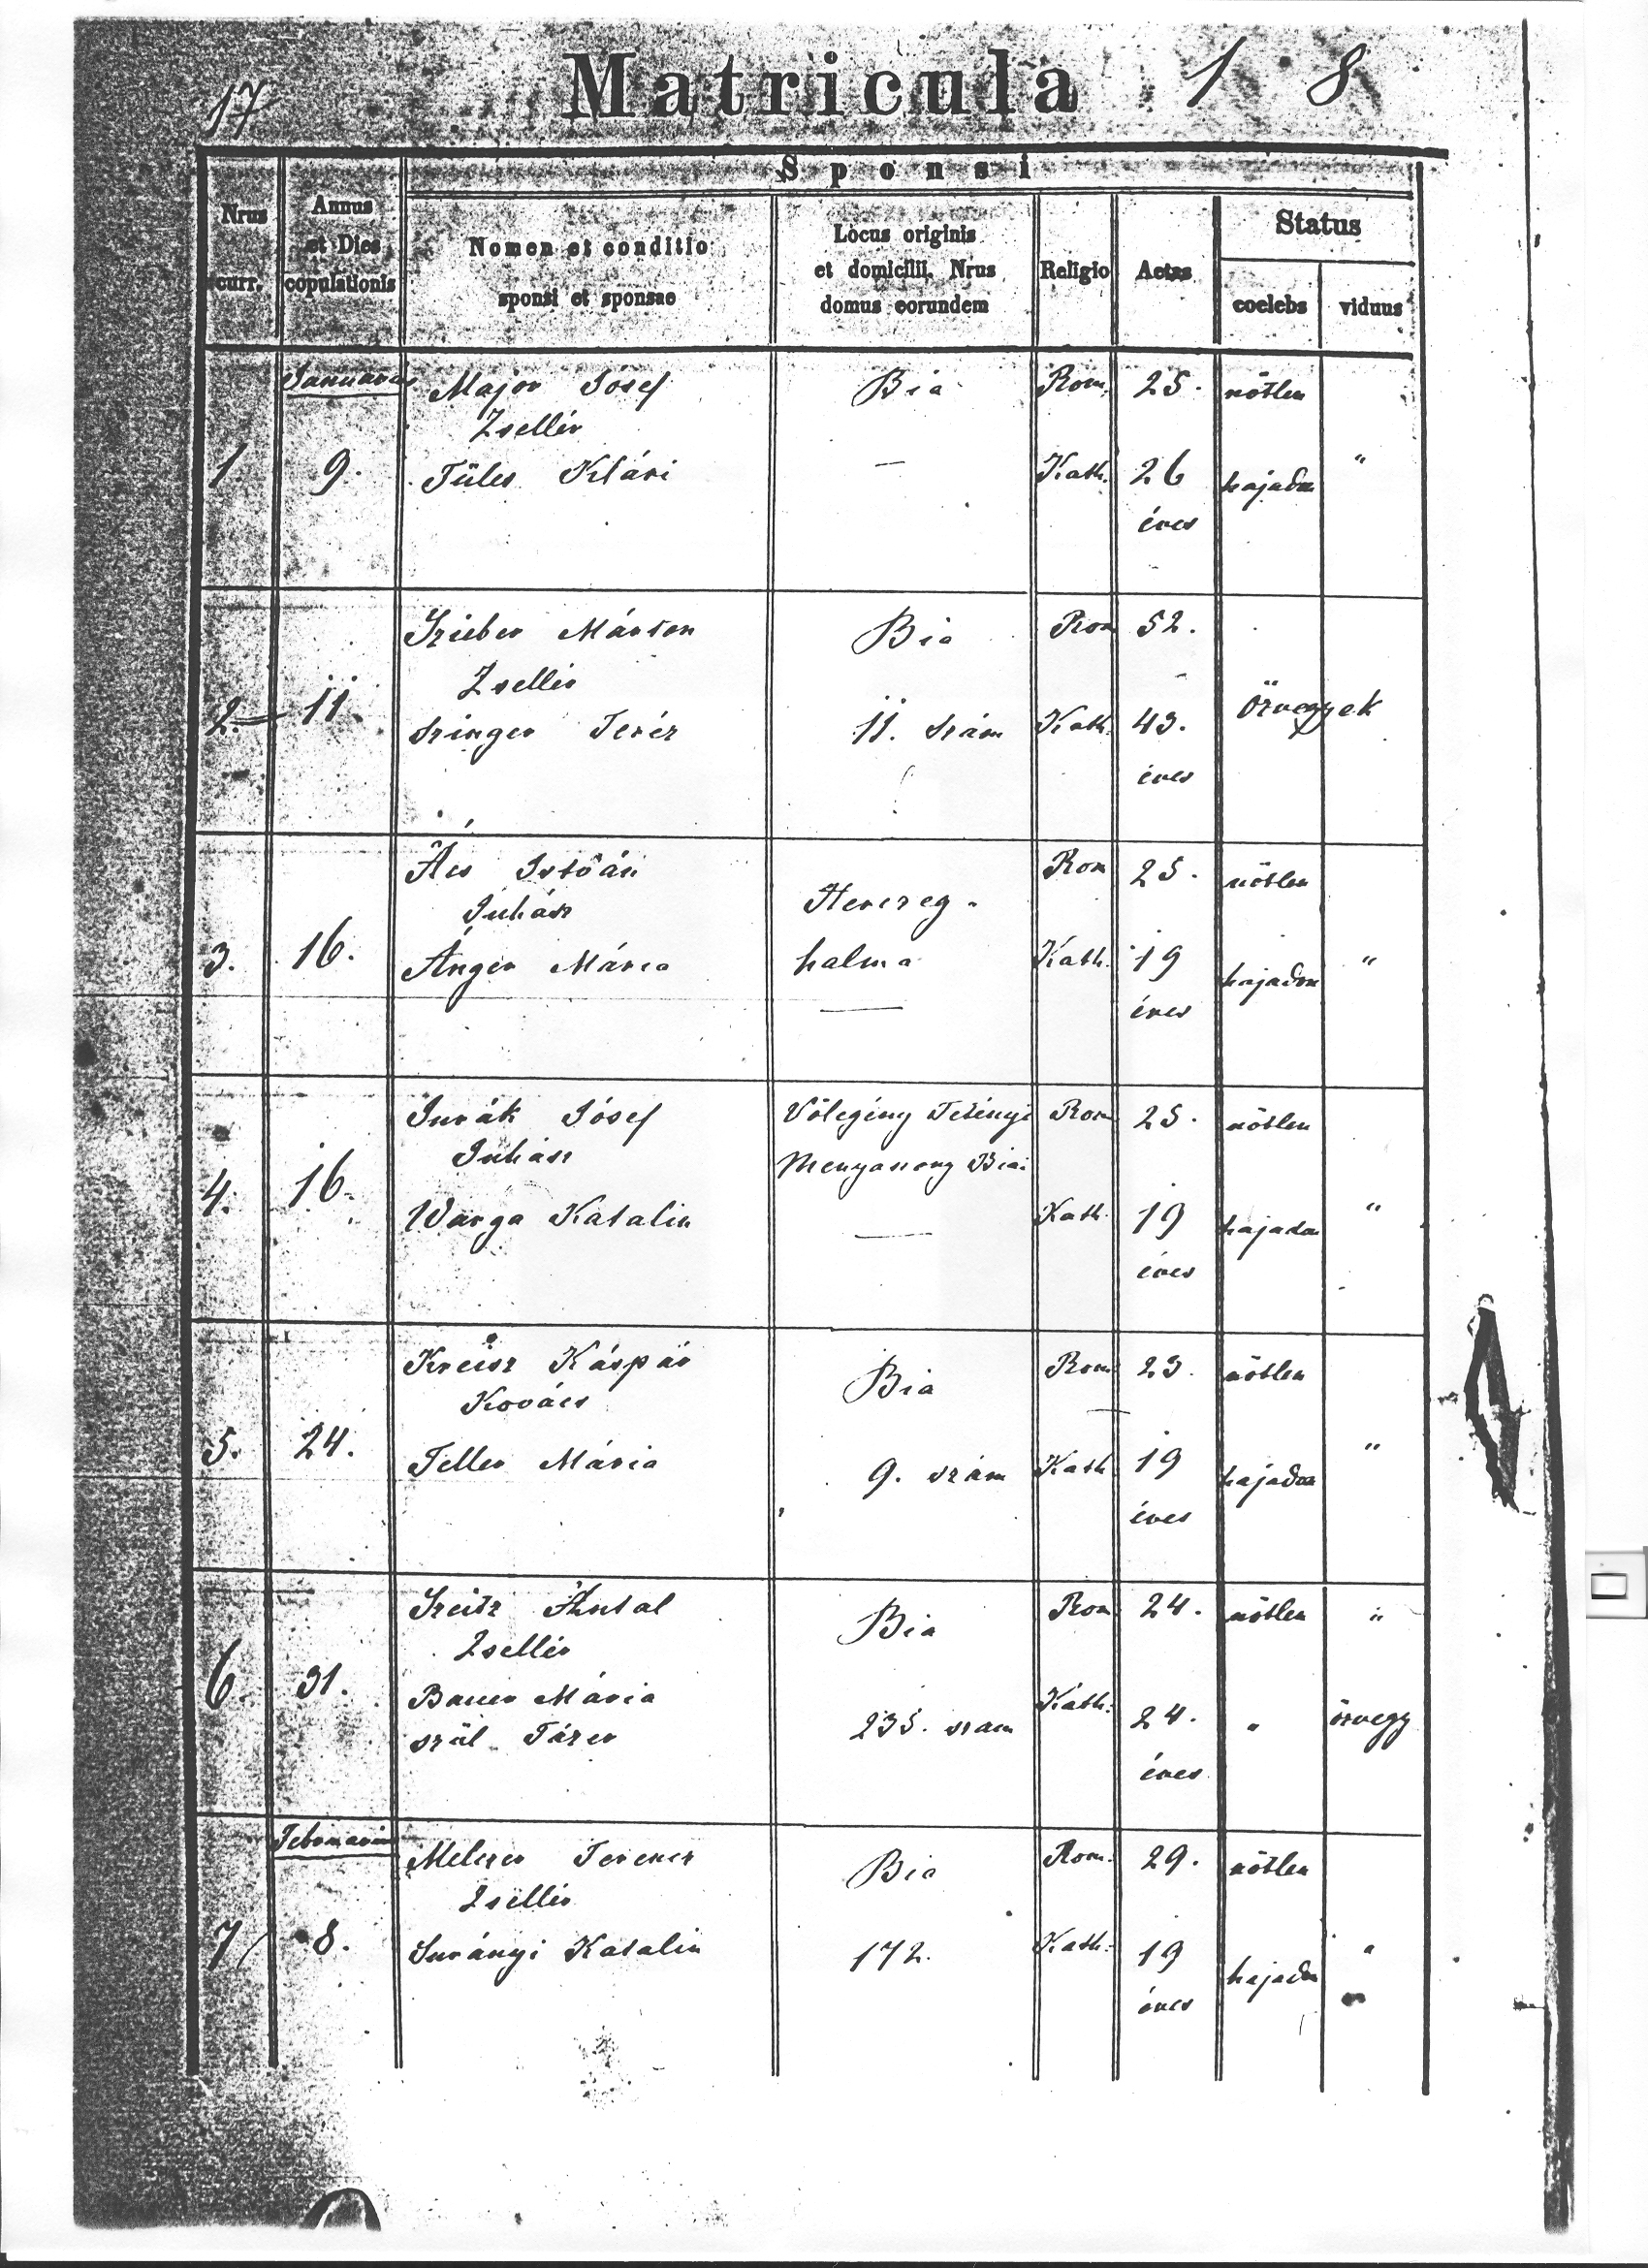 17 Matricula 1 8
Sponsi
Nrus curr.
Annus et Dies copulationis
Nomen et conditio sponsi et sponsae
Locus originis et domicilii. Nrus domus eorundem
Religio
Aetas
Status
coelebs
viduus
Januarius Major Jósef Bia Rom. 25. nőtlen
Zsellér
1. 9. Füles Klári — Kath. 26 hajadon "
éves
Szieber Márton Bia Rom 52.
Zsellér
2. 11. Szinger Teréz 11. szám Kath. 43. özvegyek
éves
Ács István Rom 25. nőtlen
Juhász Herczeg-
3. 16. Ánger Mária halma Kath. 19 hajadon "
éves
Jurák Jósef Vőlegény Tétényi Rom 25. nőtlen
Juhász Menyasszony Biai
4. 16. Warga Katalin — Kath. 19 hajadon "
éves
Kreisz Káspár Bia Rom 23. nőtlen
Kovács
5. 24. Feller Mária 9. szám Kath 19 hajadon "
éves
Szeitz Antal Bia Rom 24. nőtlen "
Zsellér
6. 31. Bauer Mária Kath.
szül 235. szam 24. " özvegy
éves
Februarius Melczer Ferencz Bia Rom. 29. nőtlen
Zsellér
7 8. Surányi Katalin 172. Kath. 19 hajadon "
éves